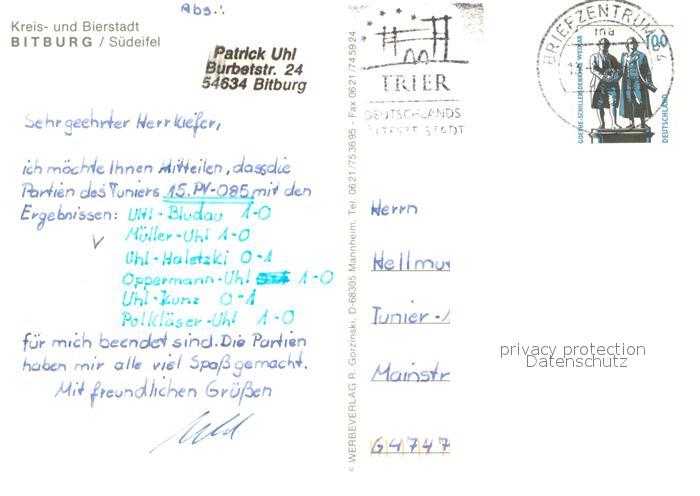 Abs.:
Kreis- und Bierstadt
BITBURG / Südeifel
Patrick Uhl
Burbetstr. 24
54634 Bitburg
Sehr geehrter Herr Kiefer,
ich möchte Ihnen Mitteilen, dass die
Partien des Tuniers 15.PV-085 mit den
Ergebnissen: Uhl-Bludau 1-0
Müller-Uhl 1-0
Uhl-Haletzki 0-1
Oppermann-Uhl 1-0
Uhl-Kunz 0-1
Polkläser-Uhl 1-0
für mich beendet sind. Die Partien
haben mir alle viel Spaß gemacht.
Mit freundlichen Grüßen
Uhl
© WERBEVERLAG R. Gorzinski, D-68305 Mannheim, Tel. 0621/753695 - Fax 0621/745924
TRIER
DEUTSCHLANDS
ÄLTESTE STADT
BRIEFZENTRUM
100
GOETHE-SCHILLER-DENKMAL WEIMAR
DEUTSCHLAND
Herrn
Hellmu
Tunier-
Mainstr
64747
privacy protection
Datenschutz